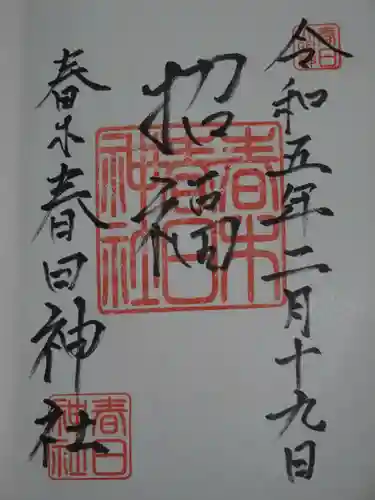 令和五年二月十九日
招福
春木春日神社
春木
春日
神社
春日
神社